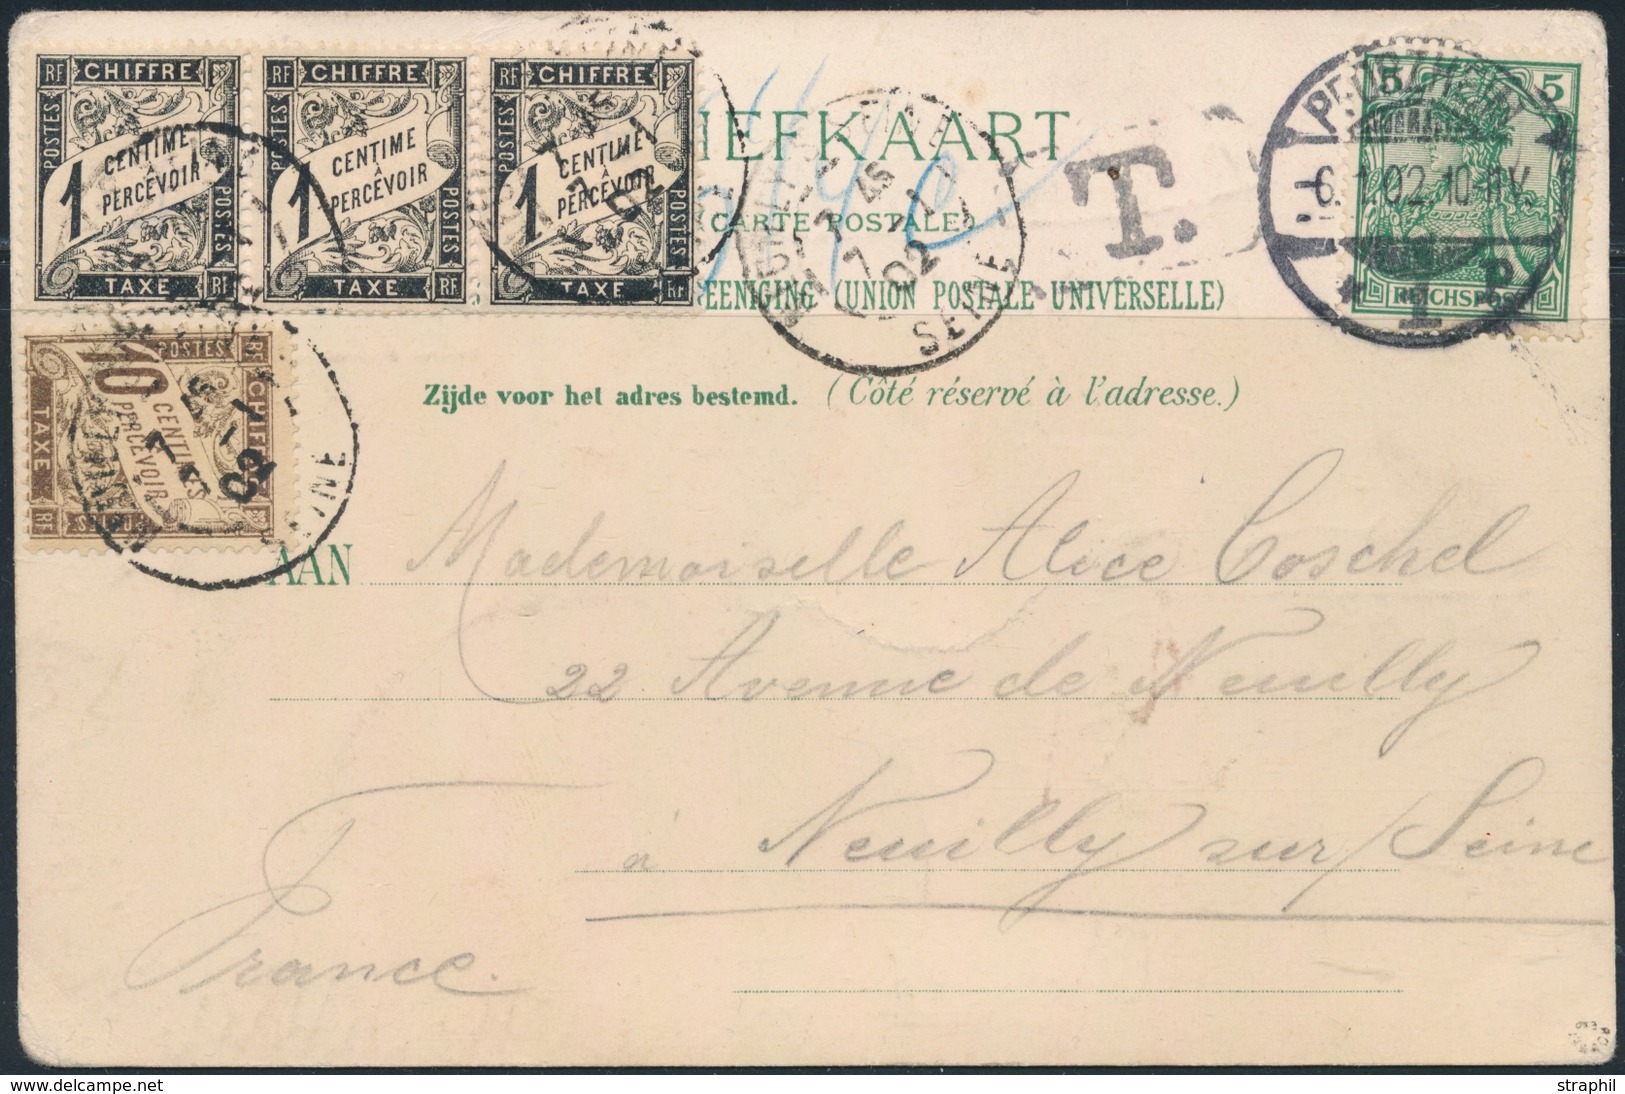 RF CHIFFRE
POSTES
1 CENTIME
À
PERCEVOIR
POSTES
TAXE RF
RF CHIFFRE
POSTES
1 CENTIME
À
PERCEVOIR
POSTES
TAXE RF
RF CHIFFRE
POSTES
1 CENTIME
À
PERCEVOIR
POSTES
TAXE RF
RF CHIFFRE
POSTES
10 CENTIMES
PERCEVOIR
TAXE RF
7 45
7 -1
02
7 45
7 -1
02
SEINE
T.
5 5
REICHSPOST
PFORZHEIM
6.1.02.10-11V.
1
P
IEFKAART
(CARTE POSTALE)
EENIGING (UNION POSTALE UNIVERSELLE)
Zijde voor het adres bestemd. (Côté réservé à l'adresse.)
AAN Mademoiselle Alice Coschel
22 Avenue de Neuilly
à Neuilly sur/Seine
France.
straphil